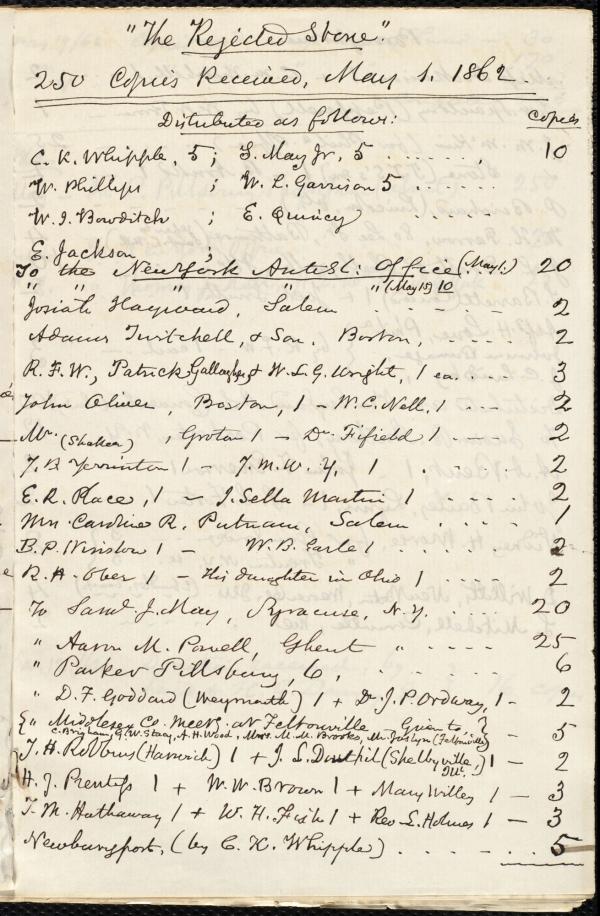 "The Rejected Stone".
250 Copies Received, May 1. 1862.
Distributed as follows: Copies
C. K. Whipple, 5; S. May Jr. 5 . . . . . . 10
W. Phillips ; W. L. Garrison 5 . . . . . .
W. I. Bowditch ; E. Quincy . . . . .
E. Jackson ;
To the New York Anti-Sl: Office (May 1.) 20
" " " " (May 15) 10
Josiah Hayward, Salem - - - - 2
Adams Twitchell, & Son, Boston, . . . . 2
R. F. W., Patrick Gallagher, & W. L. G. Wright, 1 ea. . . . 3
John Oliver, Boston, 1 - W. C. Nell, 1 . . . 2
Mr. (Shaker) , Groton 1 - Dr. Fifield 1 . . . 2
J. B. Yerrinton 1 - J. M. W. Y. 1 . . . . 2
E. R. Place, 1 - J. Sella Martin 1 . . . . 2
Mrs. Caroline R. Putnam, Salem . . . . . 1
B. P. Winslow 1 - W. B. Earle 1 . . . . . 2
R. H. Ober 1 - His daughter in Ohio 1 . . . . 2
To Saml. J. May, Syracuse, N. Y. . . . . 20
" Aaron M. Powell, Ghent " . . . . 25
" Parker Pillsbury, 6, . . . . . . 6
" D. F. Goddard (Weymouth) 1 + Dr. J. P. Ordway, 1 - 2
{" Middlesex Co. meetg. at Feltonville - Given to, } - 5
C. Brigham, G. W. Stacy, A. H. Wood, Mrs. M. M. Brooks, Mr. Joslyn (Feltonville)
J. H. Robbins (Harwich) 1 + J. L. (Shelbyville, Ill.) 1 - 2
H. J. Prentiss 1 + W. W. Brown 1 + Mary Willey 1 - 3
T. M. Hathaway 1 + W. H. Fish 1 + Rev. S. Holmes 1 - 3
Newburyport, (by C. K. Whipple) . . - . . . 5